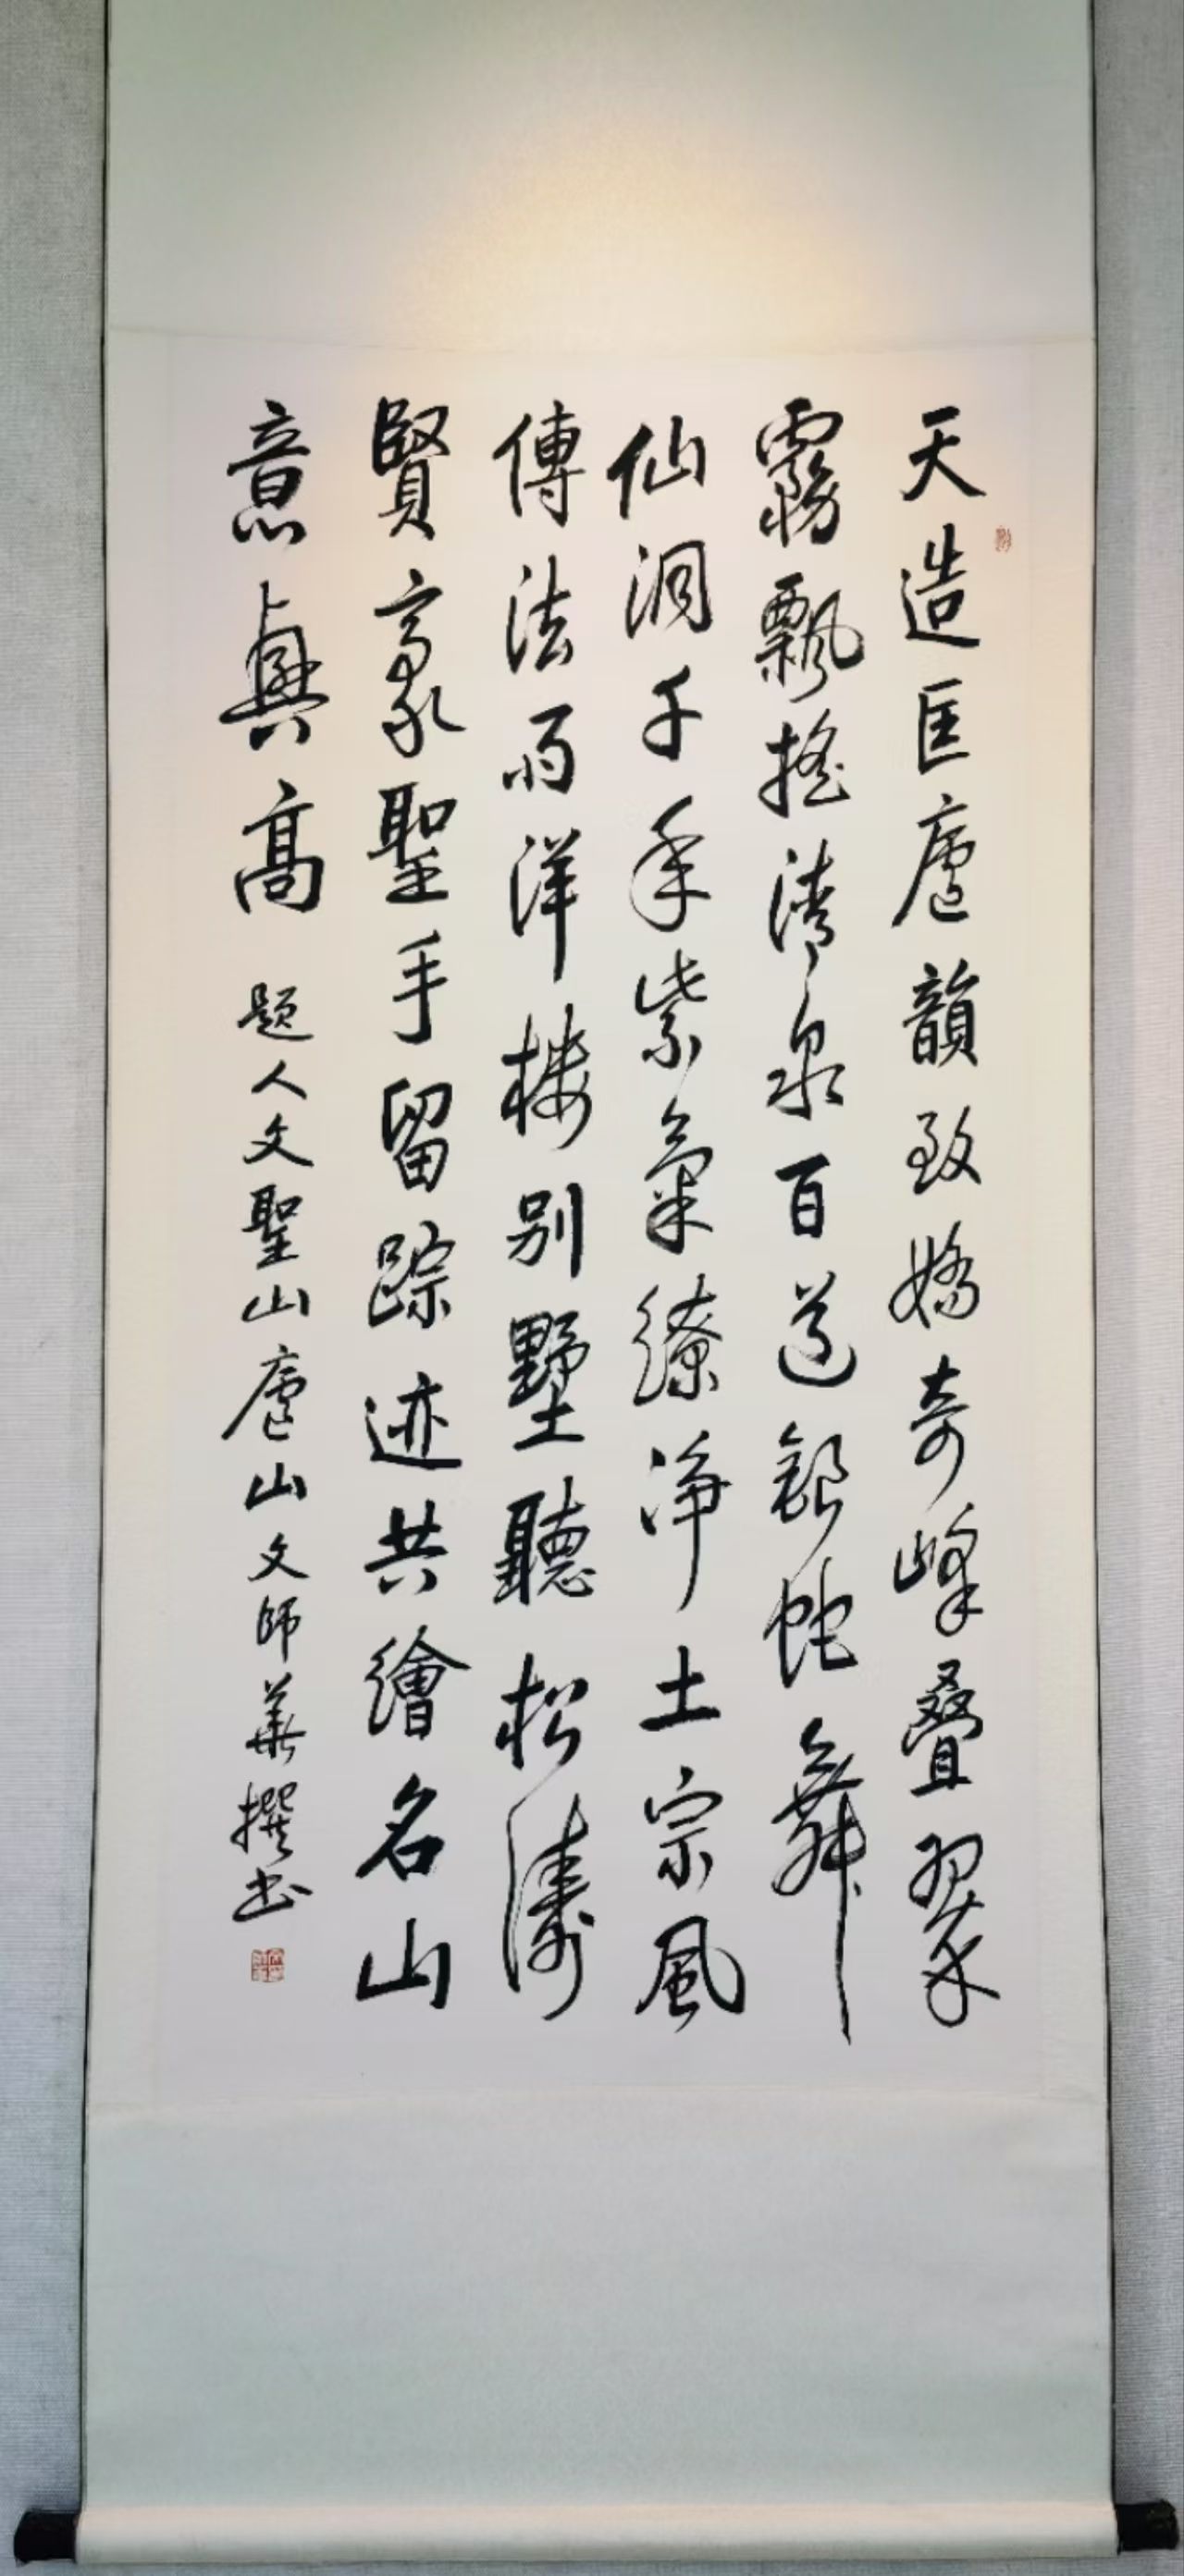 天造匡廬韻致嬌奇峰叠翠
霧飄摇清泉百道銀蛇舞
仙洞千年紫氣繚净土宗風
傳法雨洋楼别墅聽松濤
賢豪聖手留踪迹共繪名山
意興高 题人文聖山廬山文師華撰书